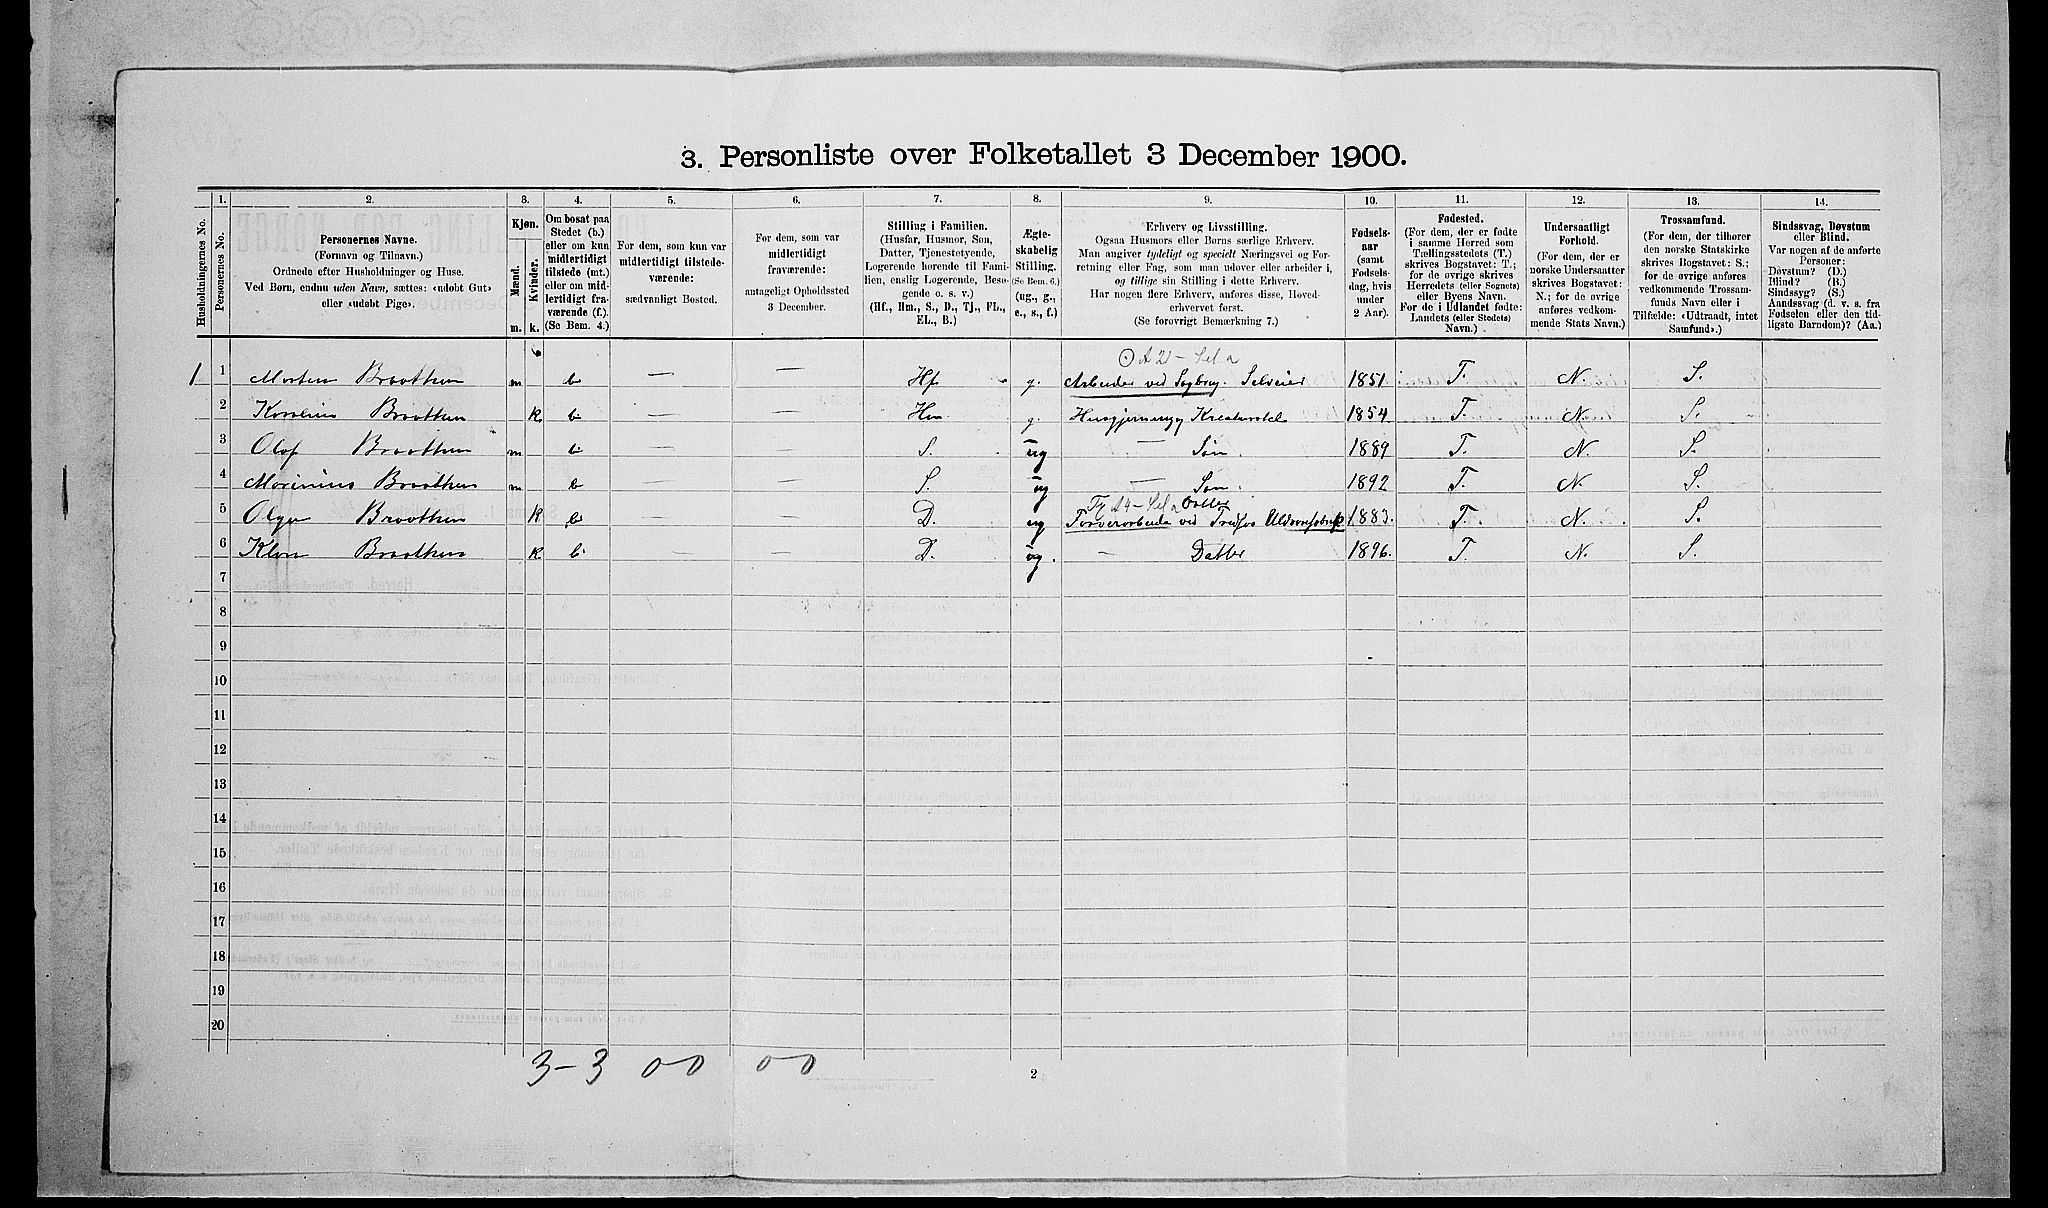 3. Personliste over Folketallet 3 December 1900.
Husholdningernes No.
1. Personernes No.
2. Personernes Navne.
(Fornavn og Tilnavn.)
Ordnede efter Husholdninger og Huse.
Ved Børn, endnu uden Navn, sættes: «udøbt Gut»
eller «udøbt Pige».
3. Kjøn.
Mænd. m.
Kvinder. k.
4. Om bosat paa
Stedet (b.)
eller om kun
midlertidigt
tilstede (mt.)
eller om mid-
lertidigt fra-
værende (f.).
(Se Bem. 4.)
5. For dem, som kun var
midlertidigt tilstede-
værende:
sædvanligt Bosted.
6. For dem, som var
midlertidigt
fraværende:
antageligt Opholdssted
3 December.
7. Stilling i Familien.
(Husfar, Husmor, Søn,
Datter, Tjenestetyende,
Logerende hørende til Fami-
lien, enslig Logerende, Besø-
gende o. s. v.)
(Hf., Hm., S., D., Tj., FL.,
EL., B.)
8. Ægte-
skabelig
Stilling.
(Se Bem. 6.)
(ug., g.,
e., s., f.)
9. Erhverv og Livsstilling.
Ogsaa Husmors eller Børns særlige Erhverv.
Man angiver tydeligt og specielt Næringsvei og For-
retning eller Fag, som man udøver eller arbeider i,
og tillige sin Stilling i dette Erhverv.
Har nogen flere Erhverv, anføres disse, Hoved-
erhvervet først.
(Se forøvrigt Bemærkning 7.)
10. Fødsels-
aar
(samt
Fødsels-
dag, hvis
under
2 Aar).
11. Fødested.
(For dem, der er fødte
i samme Herred som
Tællingsstedets (T.)
skrives Bogstavet: T.;
for de øvrige skrives
Herredets (eller Sognets)
eller Byens Navn.
For de i Udlandet fødte:
Landets (eller Stedets)
Navn.)
12. Undersaatligt
Forhold.
(For dem, der er
norske Undersaatter
skrives Bogstavet:
N.; for de øvrige
anføres vedkom-
mende Stats Navn.)
13. Trossamfund.
(For dem, der tilhører
den norske Statskirke
skrives Bogstavet: S.;
for de øvrige anføres
vedkommende Trossam-
funds Navn eller i
Tilfælde: «Udtraadt, intet
Samfund».)
14. Sindssvag, Døvstum
eller Blind.
Var nogen af de anførte
Personer:
Døvstum? (D.)
Blind? (B.)
Sindssyg? (S.)
Aandssvag (d. v. s. fra
Fødselen eller den tid-
ligste Barndom)? (Aa.)
A 21 -
1 1 Morten Braathen m b — — Hf g. Arbeider ved Sagbrug. Selveier 1851 T. N. S.
2 Karelius Braathen k b — — Hm g. Husgjerning og Kreaturstel 1854 T. N. S.
3 Olaf Braathen m b — — S. ug — Søn 1889 T. N. S.
4 Marinius Braathen m b — — S. ug — Søn 1892 T. N. S.
A4 - Datter
5 Olga Braathen k b — — D. ug ved 1883 T. N. S.
6 Klara Braathen k b — — D. ug — Datter 1896 T. N. S.
7
8
9
10
11
12
13
14
15
16
17
18
19
20
3-3 0-0 0-0
2